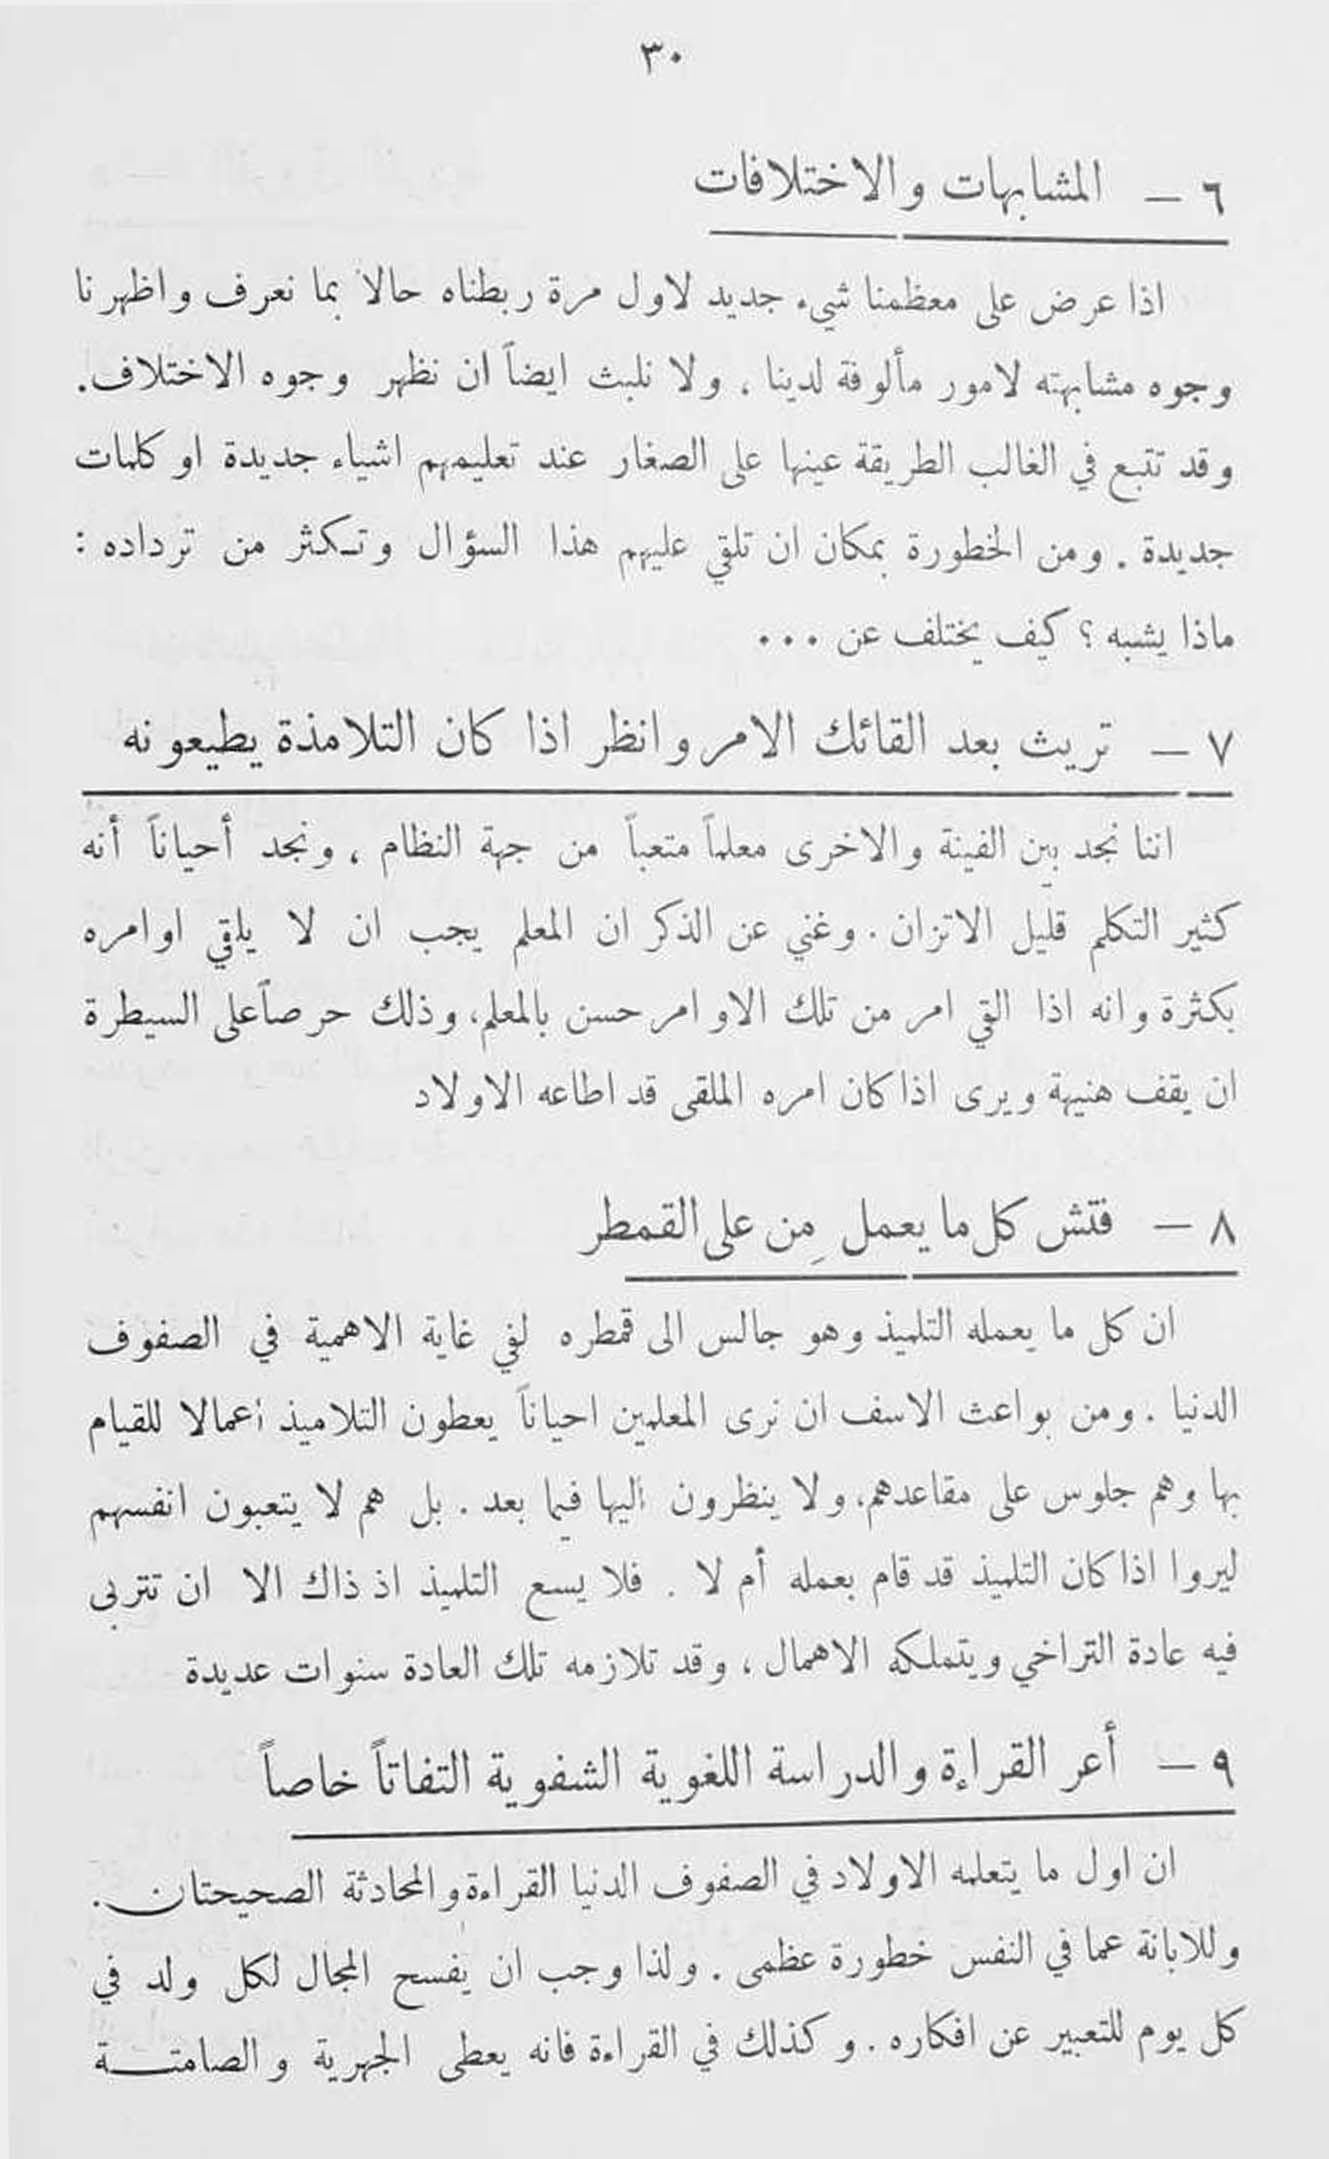 ٣٠
٦ – المشابهات والاختلافات
اذا عرض على معظمنا شيء جديد لاول مرة ربطناه حالا بما نعرف واظهرنا
وجوه مشابهته لامور مألوفة لدينا ، ولا نلبث ايضاً ان نظهر وجوه الاختلاف.
وقد تتبع في الغالب الطريقة عينها على الصغار عند تعليمهم اشياء جديدة او كلمات
جديدة . ومن الخطورة بمكان ان تلقي عليهم هذا السؤال وتكثر من ترداده :
ماذا يشبه ؟ كيف يختلف عن ...
٧ – تريث بعد القائك الامر وانظر اذا كان التلامذة يطيعونه
اننا نجد بين الفينة والاخرى معلماً متعباً من جهة النظام ، ونجد أحياناً أنه
كثير التكلم قليل الاتزان . وغني عن الذكر ان المعلم يجب ان لا يلقي اوامره
بكثرة وانه اذا القي امر من تلك الاوامر حسن بالمعلم، وذلك حرصاً على السيطرة
ان يقف هنيهة ويرى اذا كان امره الملقى قد اطاعه الاولاد
٨ – فتش كل ما يعمل من على القمطر
ان كل ما يعمله التلميذ وهو جالس الى قمطره لفي غاية الاهمية في الصفوف
الدنيا . ومن بواعث الاسف ان نرى المعلمين احياناً يعطون التلاميذ أعمالا للقيام
بها وهم جلوس على مقاعدهم، ولا ينظرون اليها فيما بعد . بل هم لا يتعبون انفسهم
ليروا اذا كان التلميذ قد قام بعمله أم لا . فلا يسع التلميذ اذ ذاك الا ان تتربى
فيه عادة التراخي ويتملكه الاهمال ، وقد تلازمه تلك العادة سنوات عديدة
٩ – أعر القراءة والدراسة اللغوية الشفوية التفاتاً خاصاً
ان اول ما يتعلمه الاولاد في الصفوف الدنيا القراءة والمحادثة الصحيحتان.
وللابانة عما في النفس خطورة عظمى . ولذا وجب ان يُفسح المجال لكل ولد في
كل يوم للتعبير عن افكاره . وكذلك في القراءة فانه يعطى الجهرية والصامتة